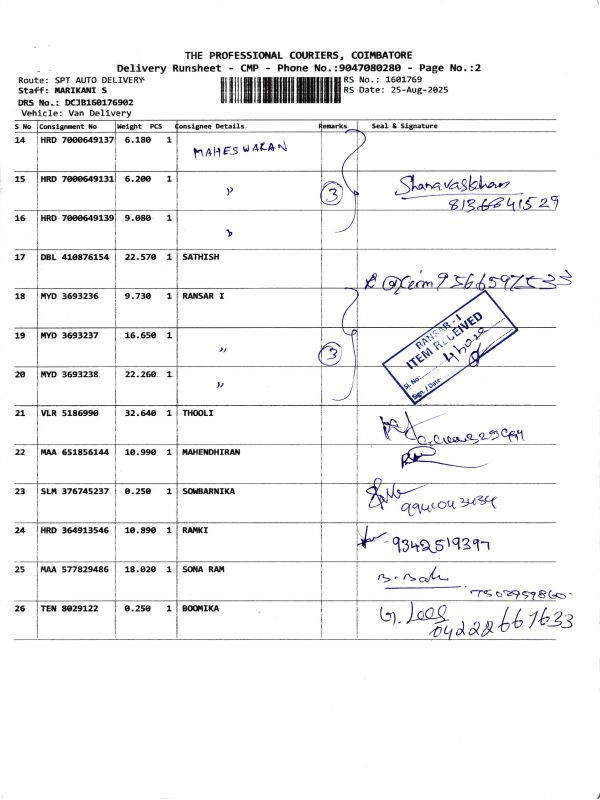 THE PROFESSIONAL COURIERS, COIMBATORE
Delivery Runsheet - CMP - Phone No.:9047080280 - Page No.:2
Route: SPT AUTO DELIVERY RS No.: 1601769
Staff: MARIKANI S RS Date: 25-Aug-2025
DRS No.: DCJB160176902
Vehicle: Van Delivery
S No Consignment No Weight PCS Consignee Details Remarks Seal & Signature
14 HRD 7000649137 6.180 1 MAHESWARAN
15 HRD 7000649131 6.200 1 〃 3 Shanavaskhan
8136841529
16 HRD 7000649139 9.080 1 〃
17 DBL 410876154 22.570 1 SATHISH
18 MYD 3693236 9.730 1 RANSAR I
RANSAR - I
19 MYD 3693237 16.650 1 〃 3 ITEM RECEIVED
Sl. No:
20 MYD 3693238 22.260 1 〃
Sign. / Date
21 VLR 5186990 32.640 1 THOOLI
22 MAA 651856144 10.990 1 MAHENDHIRAN
23 SLM 376745237 0.250 1 SOWBARNIKA
24 HRD 364913546 10.890 1 RAMKI 9342519397
25 MAA 577829486 18.020 1 SONA RAM
26 TEN 8029122 0.250 1 BOOMIKA
04222661633